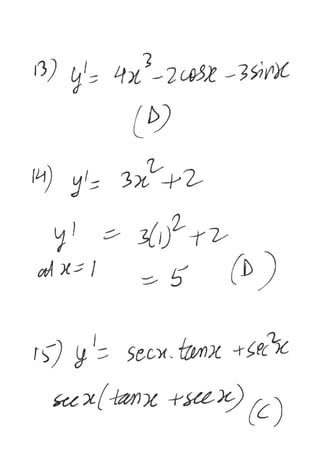 13) y' = 4x³ - 2cosx - 3sinx
(D)
14) y' = 3x² + 2
y' = 3(1)² + 2
at x = 1 = 5 (D)
15) y' = secx.tanx + sec²x
secx(tanx + secx) (C)